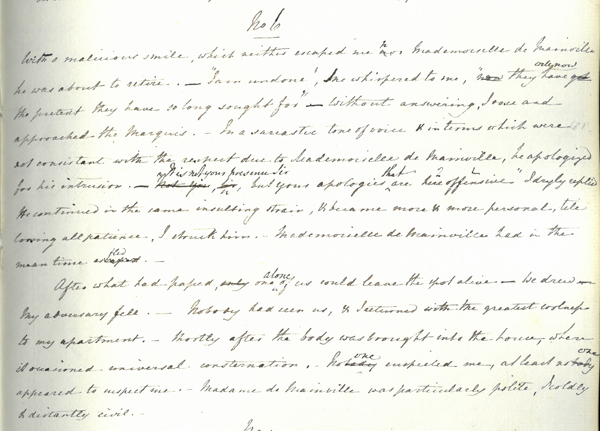 No 6
With a malicious smile, which neither escaped me nor Mademoiselle de Mainville
he was about to retire. – "I am undone", she whispered to me, "now they have got only now
the pretext they have so long sought for" – Without answering, I rose and
approached the Marquis. – In a sarcastic tone of voice & in terms which were
not consistant with the respect due to Mademoiselle de Mainville, he apologized
for his intrusion. – "It is not your presence Sir, but your apologies that are here offensive" I dryly replied
He continued in the same insulting strain, & became more & more personal, till
losing all patience, I struck him. – Mademoiselle de Mainville had in the
mean time
After what had passed, only one alone of us could leave the spot alive – We drew –
My adversary fell. – Nobody had seen us, & I returned with the greatest coolness
to my apartment. – Shortly after the body was brought into the house, where
it occasioned universal consternation. – Nobody one suspected me, at least nobody one
appeared to suspect me. – Madame de Mainville was particularly polite, I coldly
& distantly civil. –